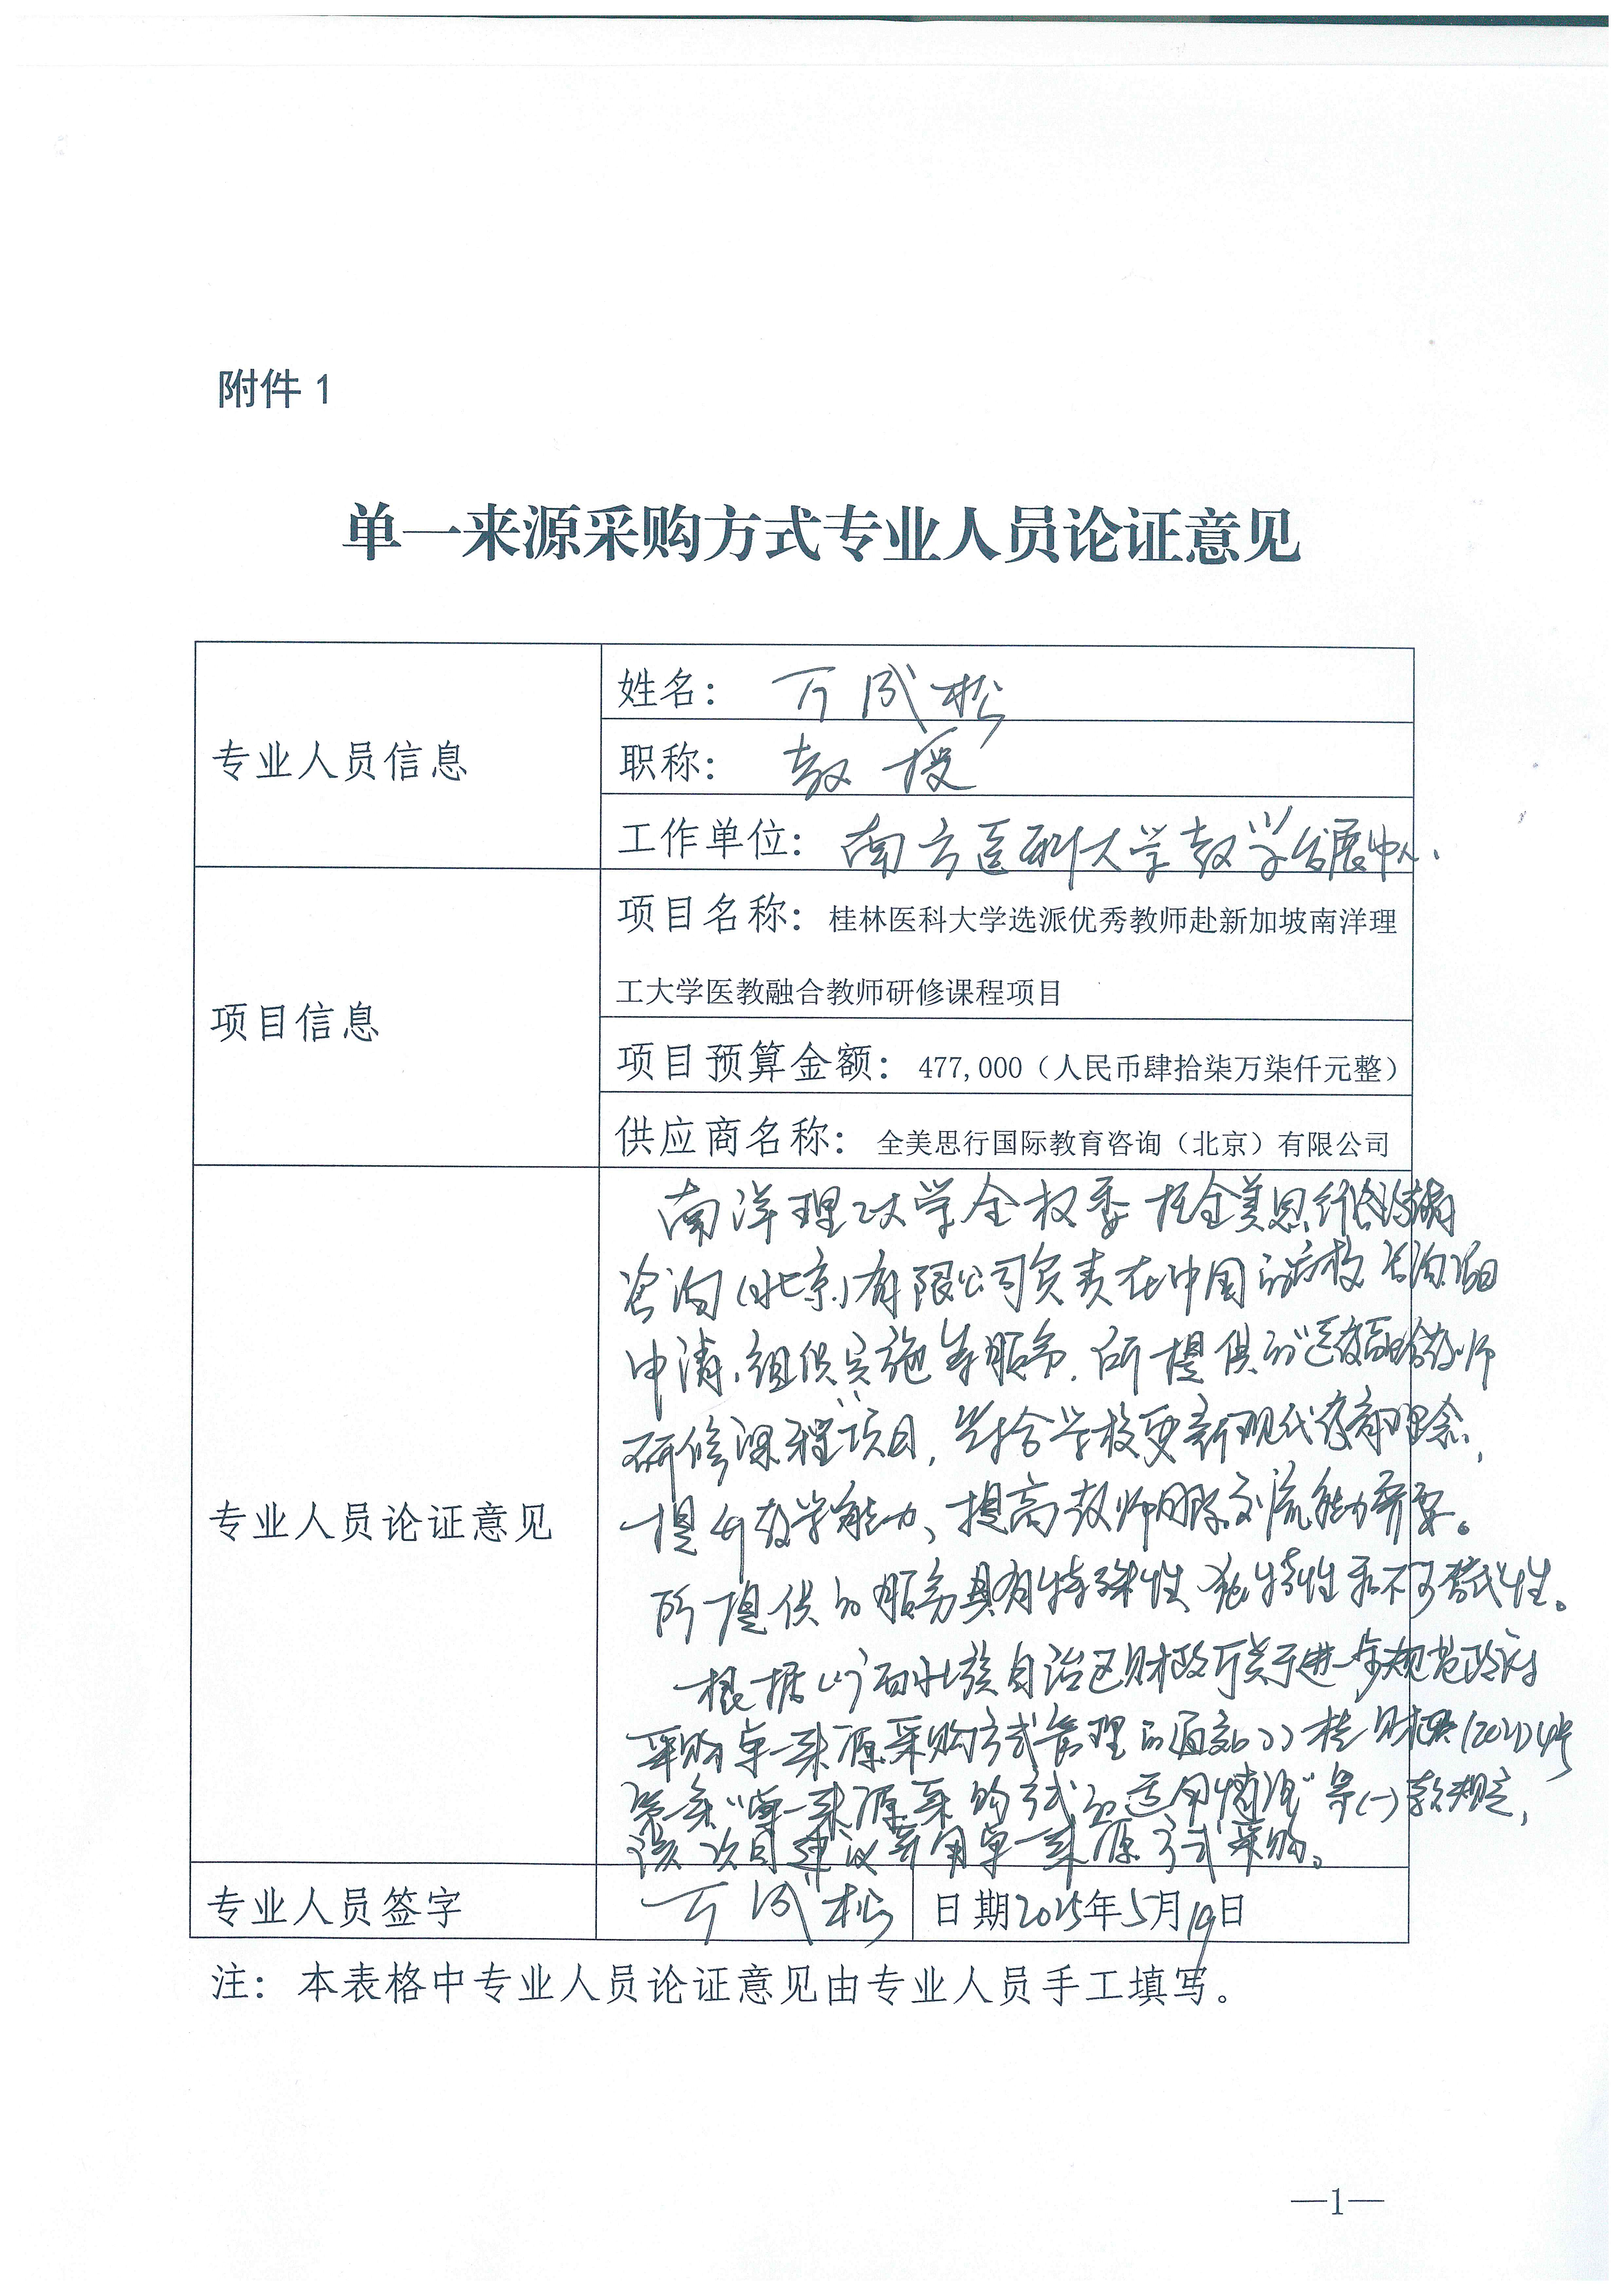 附件 1
单一来源采购方式专业人员论证意见
专业人员信息
姓名： 万成松
职称： 教授
工作单位： 南方医科大学教学发展中心.
项目信息
项目名称：桂林医科大学选派优秀教师赴新加坡南洋理
工大学医教融合教师研修课程项目
项目预算金额：477,000（人民币肆拾柒万柒仟元整）
供应商名称：全美思行国际教育咨询（北京）有限公司
专业人员论证意见
南洋理工大学全权委托全美思行国际教育
咨询(北京)有限公司负责在中国的院校咨询、项目
申请、组织实施等服务. 所提供的“医教融合教师
研修课程”项目, 符合学校更新现代教育理念,
提升教学能力、提高教师国际交流能力需要。
所提供的服务具有特殊性、独特性和不可替代性。
根据《广西壮族自治区财政厅关于进一步规范政府
采购单一来源采购方式管理的通知》桂财采(2021)4号
第一条“单一来源采购方式的适用情形”第(一)款规定,
该项目建议采用单一来源方式采购。
专业人员签字
万成松
日期2025年5月19日
注：本表格中专业人员论证意见由专业人员手工填写。
—1—